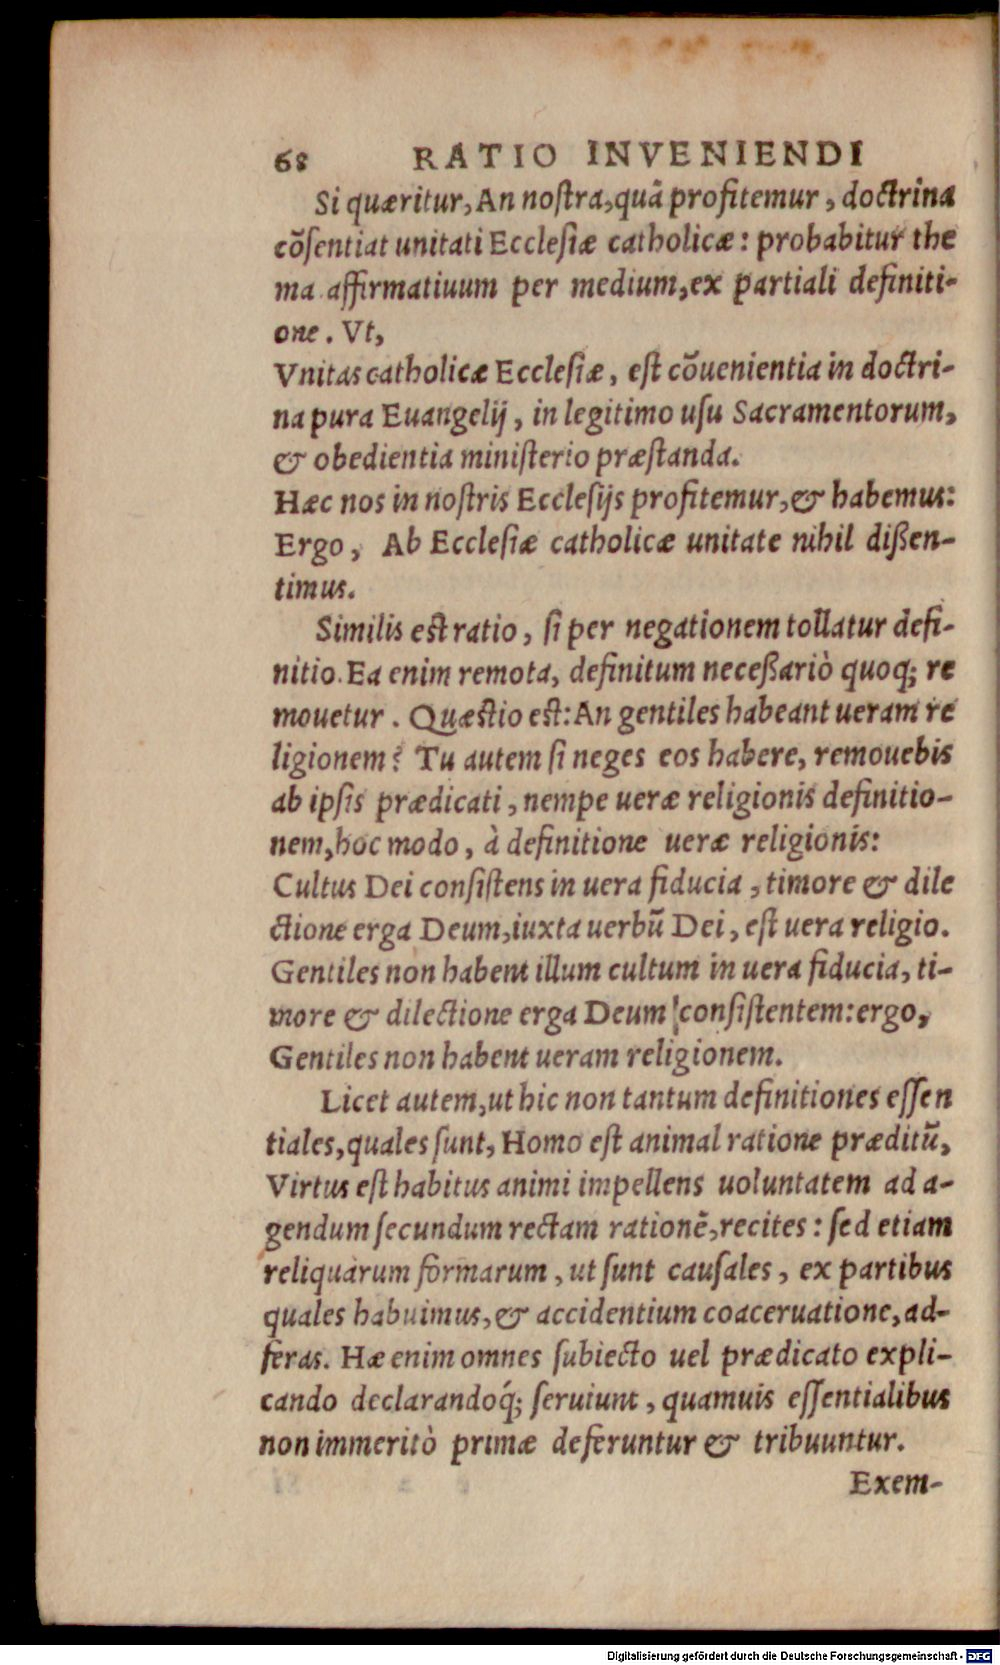 68 RATIO INVENIENDI
Si quæritur, An nostra, quã profitemur, doctrina
cõsentiat unitati Ecclesiæ catholicæ: probabitur the
ma affirmatiuum per medium, ex partiali definiti-
one. Vt,
Vnitas catholicæ Ecclesiæ, est cõuenientia in doctri-
na pura Euangelij, in legitimo usu Sacramentorum,
& obedientia ministerio præstanda.
Hæc nos in nostris Ecclesijs profitemur, & habemus:
Ergo, Ab Ecclesiæ catholicæ unitate nihil dißen-
timus.
Similis est ratio, si per negationem tollatur defi-
nitio. Ea enim remota, definitum neceßariò quoq; re
mouetur. Quæstio est: An gentiles habeant ueram re
ligionem? Tu autem si neges eos habere, remouebis
ab ipsis prædicati, nempe ueræ religionis definitio-
nem, hoc modo, à definitione ueræ religionis:
Cultus Dei consistens in uera fiducia, timore & dile
ctione erga Deum, iuxta uerbũ Dei, est uera religio.
Gentiles non habent illum cultum in uera fiducia, ti-
more & dilectione erga Deum consistentem: ergo,
Gentiles non habent ueram religionem.
Licet autem, ut hic non tantum definitiones essen
tiales, quales sunt, Homo est animal ratione præditũ,
Virtus est habitus animi impellens uoluntatem ad a-
gendum secundum rectam rationẽ, recites: sed etiam
reliquarum formarum, ut sunt causales, ex partibus
quales habuimus, & accidentium coaceruatione, ad-
feras. Hæ enim omnes subiecto uel prædicato expli-
cando declarandoq́; seruiunt, quamuis essentialibus
non immeritò primæ deferuntur & tribuuntur.
Exem-
Digitalisierung gefördert durch die Deutsche Forschungsgemeinschaft - DFG